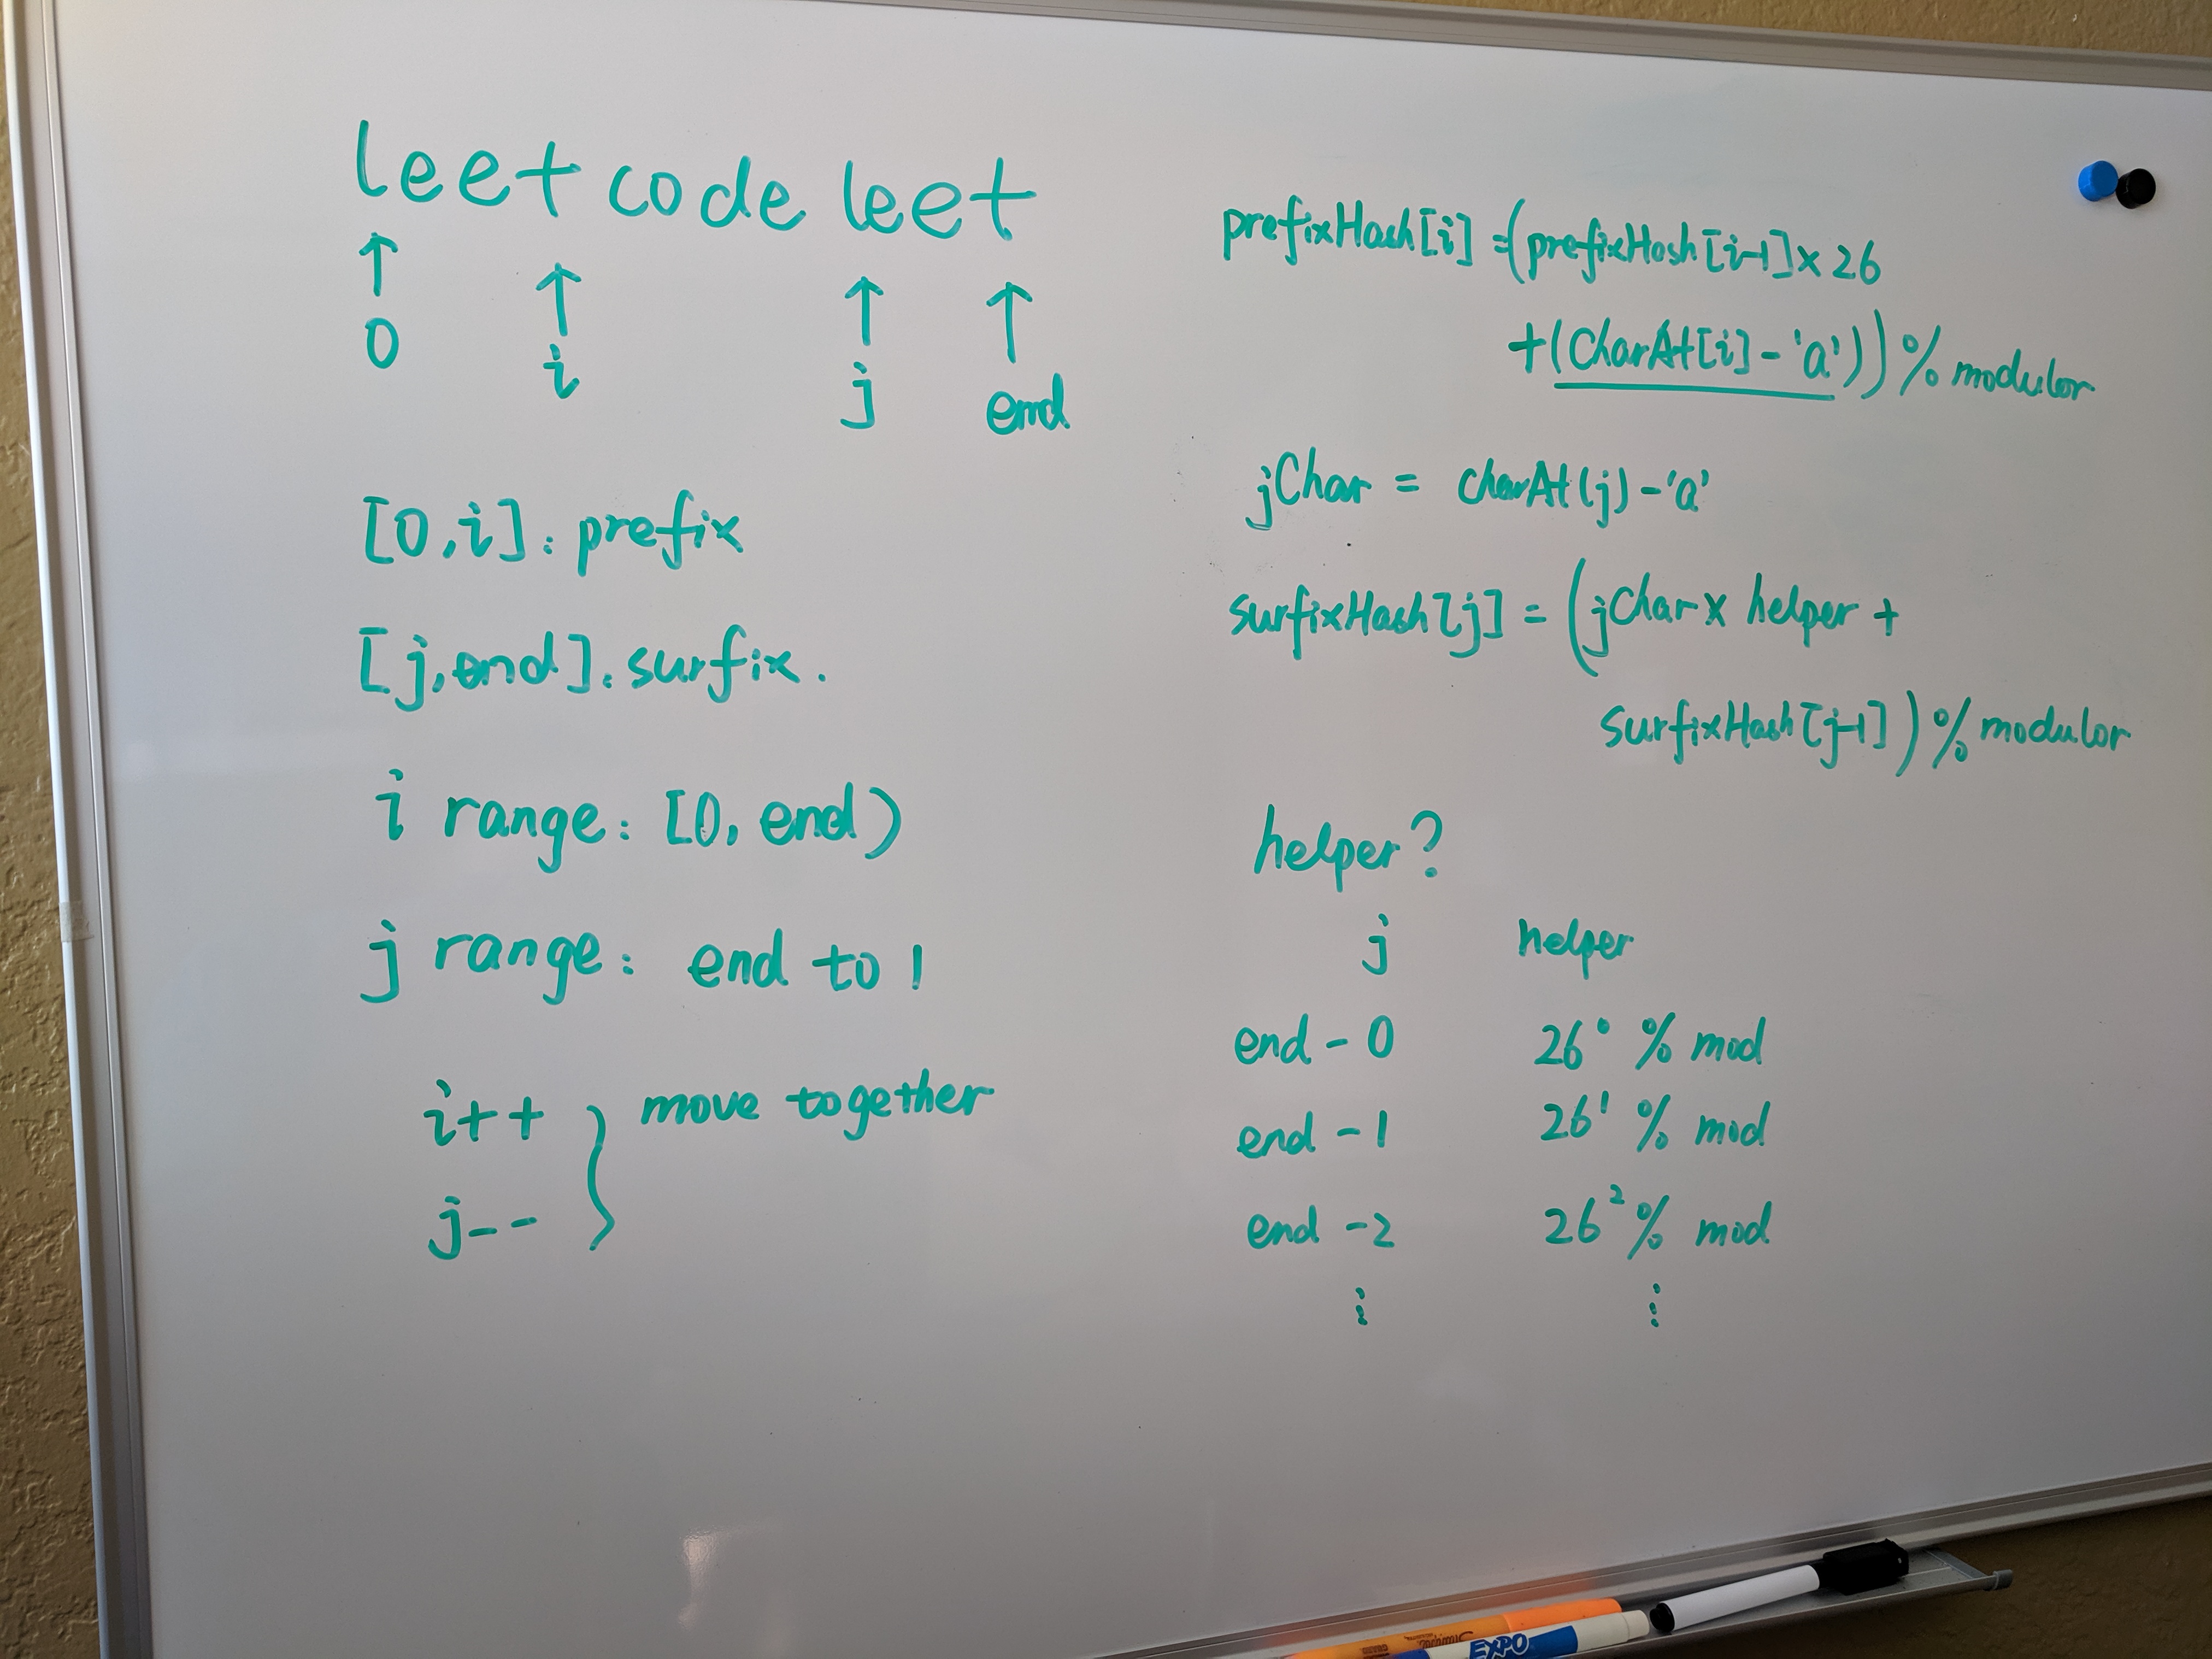 leet code leet
↑ ↑ ↑ ↑
0 i j end
[0,i]: prefix
[j,end]: surfix.
i range: [0, end)
j range: end to 1
i++ } move together
j--
prefixHash[i] =(prefixHash[i-1]×26
+(CharAt[i]-'a'))% modulor
jChar = charAt(j)-'a'
surfixHash[j] = (jChar× helper +
surfixHash[j-1])% modulor
helper?
j helper
end - 0 26⁰ % mod
end - 1 26¹ % mod
end - 2 26² % mod
⋮ ⋮
EXPO